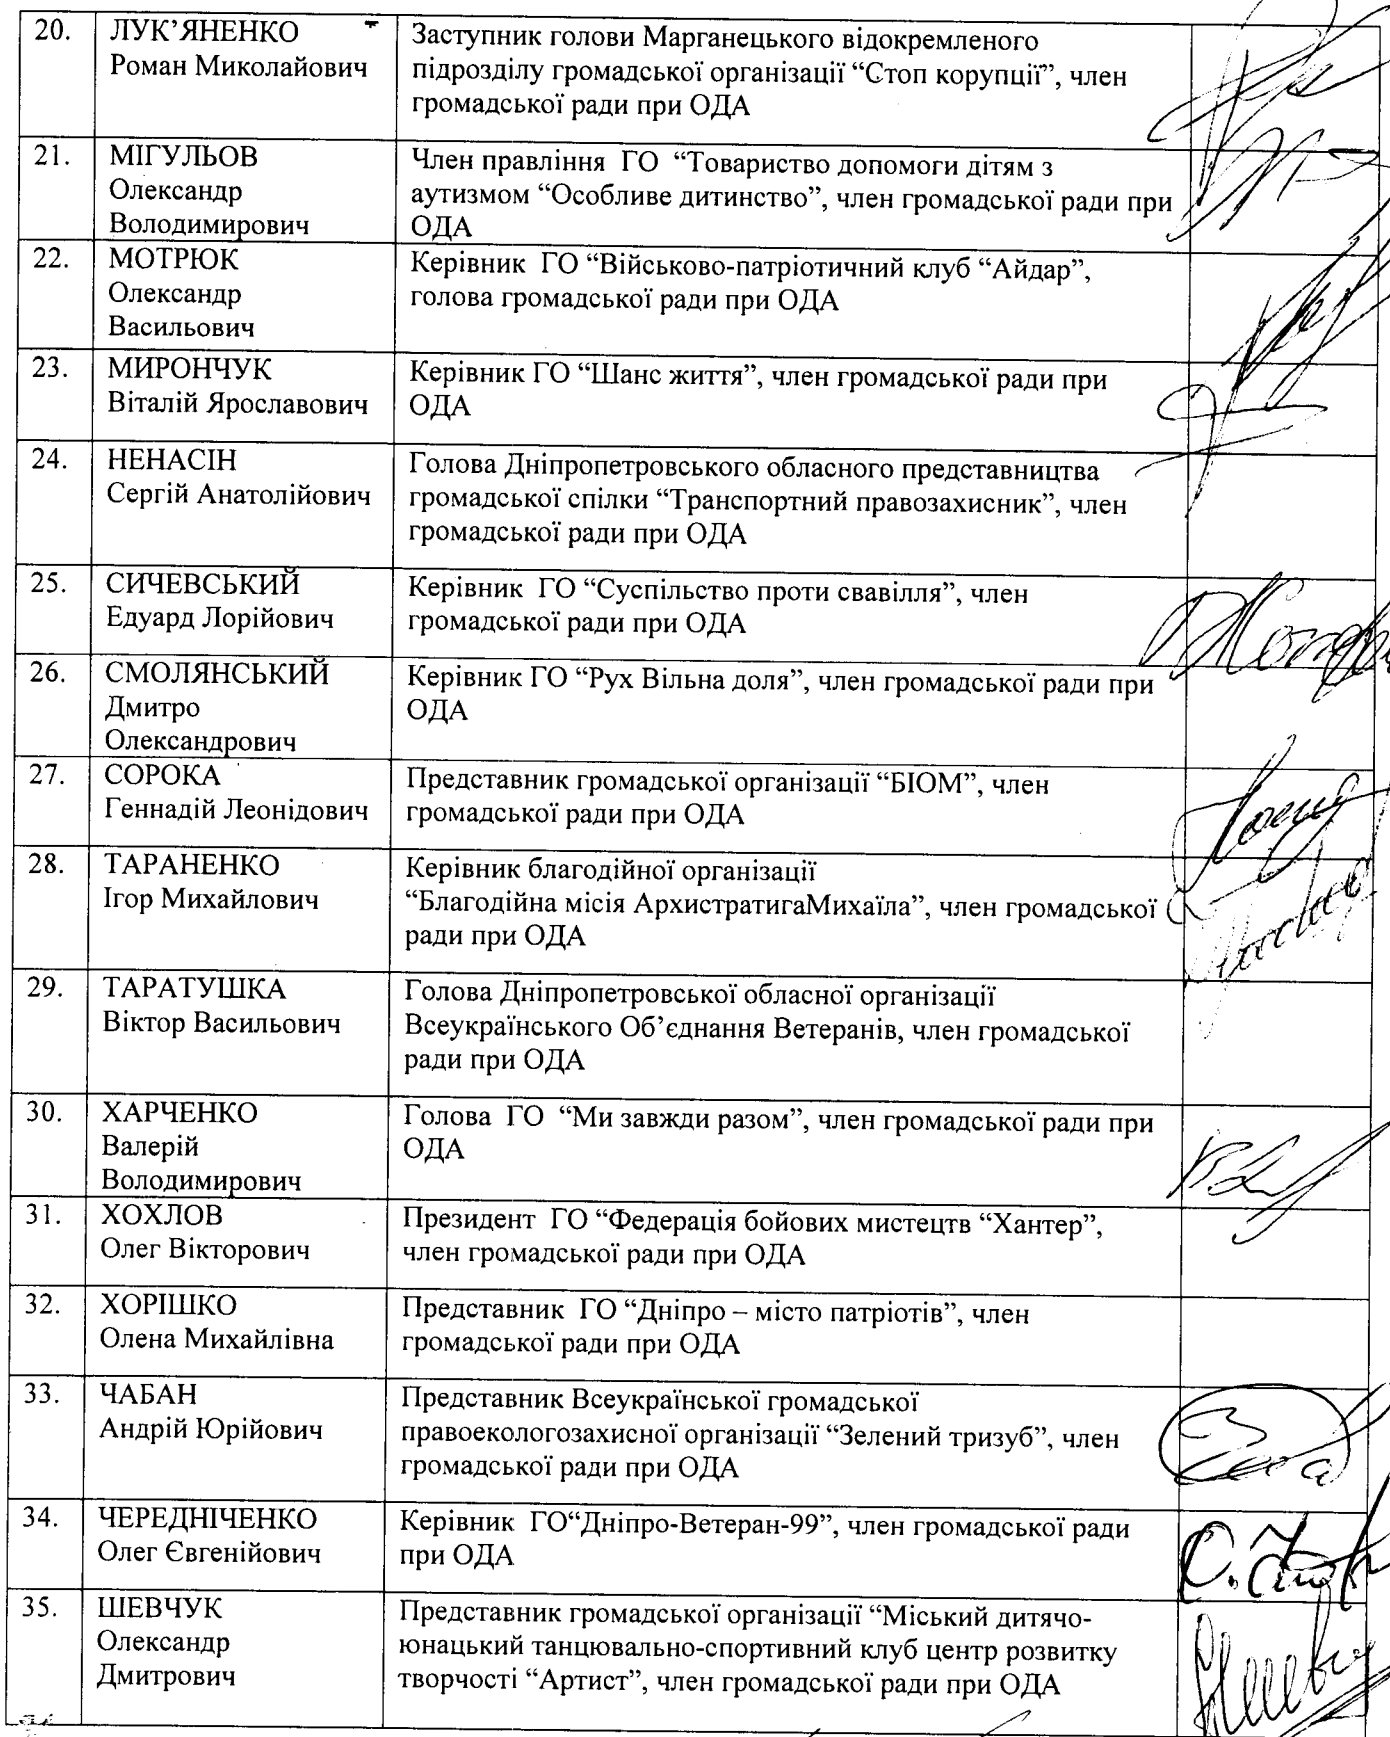 20.
ЛУК’ЯНЕНКО
Роман Миколайович
Заступник голови Марганецького відокремленого
підрозділу громадської організації “Стоп корупції”, член
громадської ради при ОДА
21.
МІГУЛЬОВ
Олександр
Володимирович
Член правління ГО “Товариство допомоги дітям з
аутизмом “Особливе дитинство”, член громадської ради при
ОДА
22.
МОТРЮК
Олександр
Васильович
Керівник ГО “Військово-патріотичний клуб “Айдар”,
голова громадської ради при ОДА
23.
МИРОНЧУК
Віталій Ярославович
Керівник ГО “Шанс життя”, член громадської ради при
ОДА
24.
НЕНАСІН
Сергій Анатолійович
Голова Дніпропетровського обласного представництва
громадської спілки “Транспортний правозахисник”, член
громадської ради при ОДА
25.
СИЧЕВСЬКИЙ
Едуард Лорійович
Керівник ГО “Суспільство проти свавілля”, член
громадської ради при ОДА
26.
СМОЛЯНСЬКИЙ
Дмитро
Олександрович
Керівник ГО “Рух Вільна доля”, член громадської ради при
ОДА
27.
СОРОКА
Геннадій Леонідович
Представник громадської організації “БІОМ”, член
громадської ради при ОДА
28.
ТАРАНЕНКО
Ігор Михайлович
Керівник благодійної організації
“Благодійна місія АрхистратигаМихаїла”, член громадської
ради при ОДА
29.
ТАРАТУШКА
Віктор Васильович
Голова Дніпропетровської обласної організації
Всеукраїнського Об’єднання Ветеранів, член громадської
ради при ОДА
30.
ХАРЧЕНКО
Валерій
Володимирович
Голова ГО “Ми завжди разом”, член громадської ради при
ОДА
31.
ХОХЛОВ
Олег Вікторович
Президент ГО “Федерація бойових мистецтв “Хантер”,
член громадської ради при ОДА
32.
ХОРІШКО
Олена Михайлівна
Представник ГО “Дніпро – місто патріотів”, член
громадської ради при ОДА
33.
ЧАБАН
Андрій Юрійович
Представник Всеукраїнської громадської
правоекологозахисної організації “Зелений тризуб”, член
громадської ради при ОДА
34.
ЧЕРЕДНІЧЕНКО
Олег Євгенійович
Керівник ГО“Дніпро-Ветеран-99”, член громадської ради
при ОДА
35.
ШЕВЧУК
Олександр
Дмитрович
Представник громадської організації “Міський дитячо-
юнацький танцювально-спортивний клуб центр розвитку
творчості “Артист”, член громадської ради при ОДА